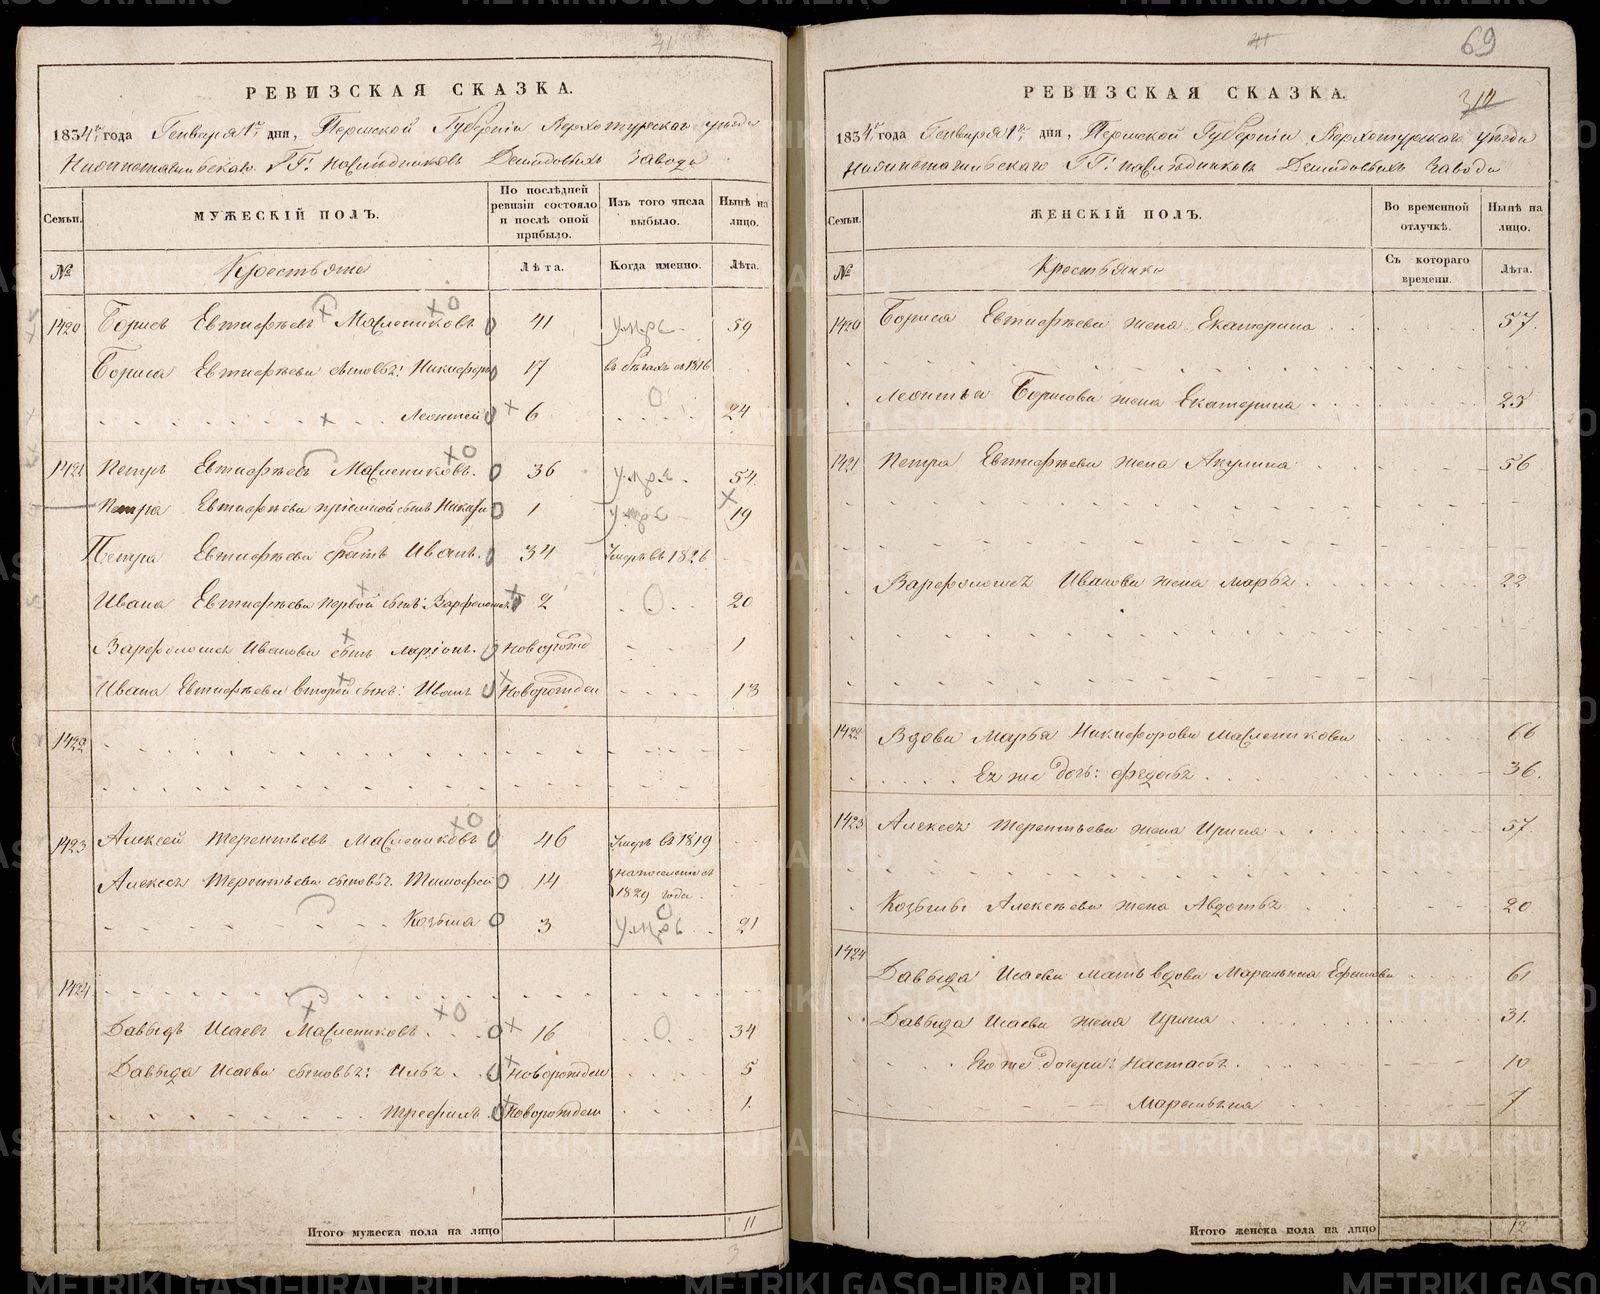 41
РЕВИЗСКАЯ СКАЗКА.
1834го года Генваря 1го дня, Пермской Губерніи Верхотурскаго уѣзда
Нижнетагильскаго ГГ: наслѣдниковъ Демидовыхъ завода
Семьи.
МУЖЕСКІЙ ПОЛЪ.
По послѣдней ревизіи состояло и послѣ оной прибыло.
Изъ того числа выбыло.
Нынѣ на лицо.
№
Крестьяне
Лѣта.
Когда именно.
Лѣта.
1420 Борисъ Евтифѣевъ Маслениковъ 41 умре 59
Бориса Евтифѣева сыновья: Никифоръ 17 въ бѣгахъ съ 1816
Леонтей 6 24
1421 Петръ Евтифѣевъ Маслениковъ. 36 умре. 54.
Петра Евтифѣева пріемной сынъ 1 умре 19
Петра Евтифѣева братъ Иванъ. 34 Умеръ въ 1826
Ивана Евтифѣева первой сынъ: Варфоломей 2 20
Варфоломея Иванова сынъ Ларіонъ. новорожд 1
Ивана Евтифѣева второй сынъ: Иванъ Новорожден 13
1422
1423 Алексей Терентьевъ Маслениковъ 46 Умеръ въ 1819
Алексея Терентьева сыновья: Тимофей 14 на поселеніе съ 1829 года.
Козьма 3 умръ 21
1424
Давыдъ Исаевъ Маслениковъ. 16 34
Давыда Исаева сыновья: Илья Новорожден 5
Трефилъ Новорожден 1.
Итого мужеска пола на лицо 11
3
41
69
РЕВИЗСКАЯ СКАЗКА.
1834го года Генваря 1го дня, Пермской Губерніи Верхотурскаго уѣзда
Нижнетагильскаго ГГ: наслѣдниковъ Демидовыхъ завода
Семьи.
ЖЕНСКІЙ ПОЛЪ.
Во временной отлучкѣ.
Нынѣ на лицо.
№
Крестьянки
Съ котораго времени.
Лѣта.
1420 Бориса Евтифѣева жена Екатерина 57.
Леонтья Борисова жена Екатерина 25
1421 Петра Евтифѣева жена Акулина 56
Варфоломея Иванова жена Марья 22
1422 Вдова Марья Никифорова Масленикова 66
Ея же дочь: Федосья 36.
1423 Алексея Терентьева жена Ирина 57
Козьмы Алексѣева жена Авдотья 20
1424
Давыда Исаева мать вдова Маремьяна Ефимова 61
Давыда Исаева жена Ирина 31.
Его же дочери: Настасья 10
Маремьяна 7
Итого женска пола на лицо 12
METRIKI.GASO-URAL.RU